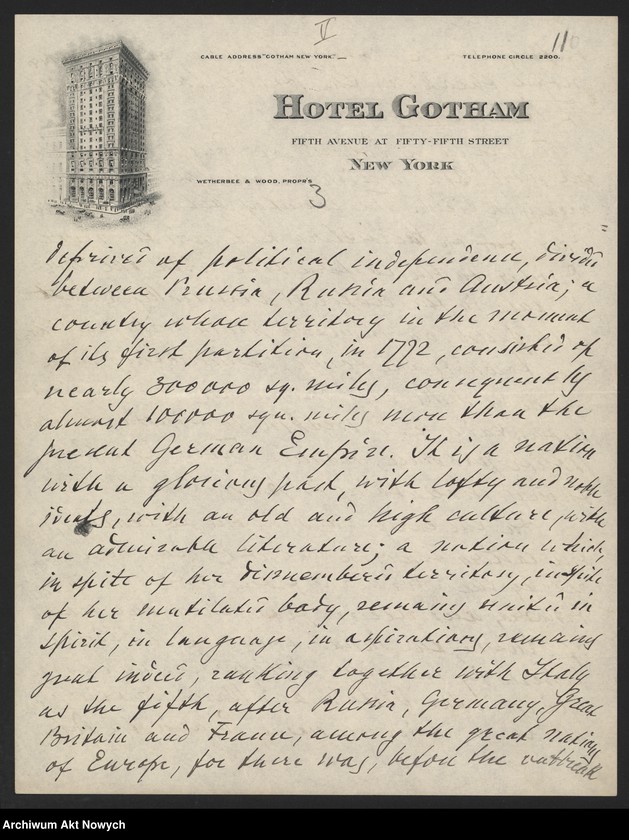 V
110
CABLE ADDRESS "GOTHAM NEW YORK"
TELEPHONE CIRCLE 2200.
HOTEL GOTHAM
FIFTH AVENUE AT FIFTY-FIFTH STREET
NEW YORK
WETHERBEE & WOOD, PROPR'S
3
deprived of political independence, divided
between Prussia, Russia and Austria; a
country whose territory in the moment
of its first partition, in 1772, consisted of
nearly 300000 sq. miles, consequently
almost 100000 squ. miles more than the
present German Empire. It is a nation
with a glorious past, with lofty and noble
ideals, with an old and high culture, with
an admirable literature; a nation which,
in spite of her dismembered territory, in spite
of her mutilated body, remains united in
spirit, in language, in aspirations, remains
great indeed, ranking together with Italy
as the fifth, after Russia, Germany, Great
Britain and France, among the great nations
of Europe, for there was, before the outbreak
Archiwum Akt Nowych